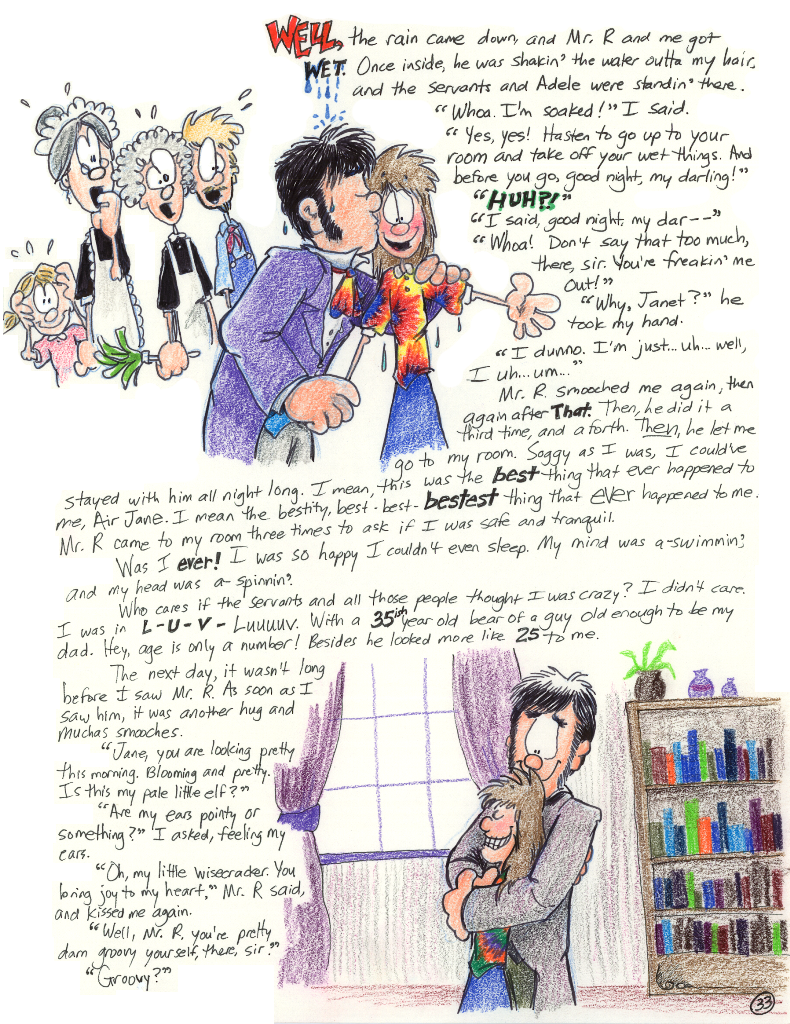 WELL, the rain came down, and Mr. R and me got
WET. Once inside, he was shakin' the water outta my hair,
and the servants and Adele were standin' there.
"Whoa. I'm soaked!" I said.
"Yes, yes! Hasten to go up to your
room and take off your wet things. And
before you go, good night, my darling!"
"HUH?!"
"I said, good night, my dar--"
"Whoa! Don't say that too much,
there, sir. You're freakin' me
out!"
"Why, Janet?" he
took my hand.
"I dunno. I'm just... uh... well,
I uh... um..."
Mr. R. smooched me again, then
again after That. Then, he did it a
third time, and a forth. Then, he let me
go to my room. Soggy as I was, I could've
stayed with him all night long. I mean, this was the best thing that ever happened to
me, Air Jane. I mean the bestity, best-best-bestest thing that ever happened to me.
Mr. R came to my room three times to ask if I was safe and tranquil.
Was I ever! I was so happy I couldn't even sleep. My mind was a-swimmin',
and my head was a-spinnin'.
Who cares if the servants and all those people thought I was crazy? I didn't care.
I was in L-U-V- Luuuuv. With a 35ish year old bear of a guy old enough to be my
dad. Hey, age is only a number! Besides he looked more like 25 to me.
The next day, it wasn't long
before I saw Mr. R. As soon as I
saw him, it was another hug and
muchas smooches.
"Jane, you are looking pretty
this morning. Blooming and pretty.
Is this my pale little elf?"
"Are my ears pointy or
something?" I asked, feeling my
ears.
"Oh, my little wisecracker. You
bring joy to my heart," Mr. R said,
and kissed me again.
"Well, Mr. R, you're pretty
darn groovy yourself, there, sir."
"Groovy?"
33